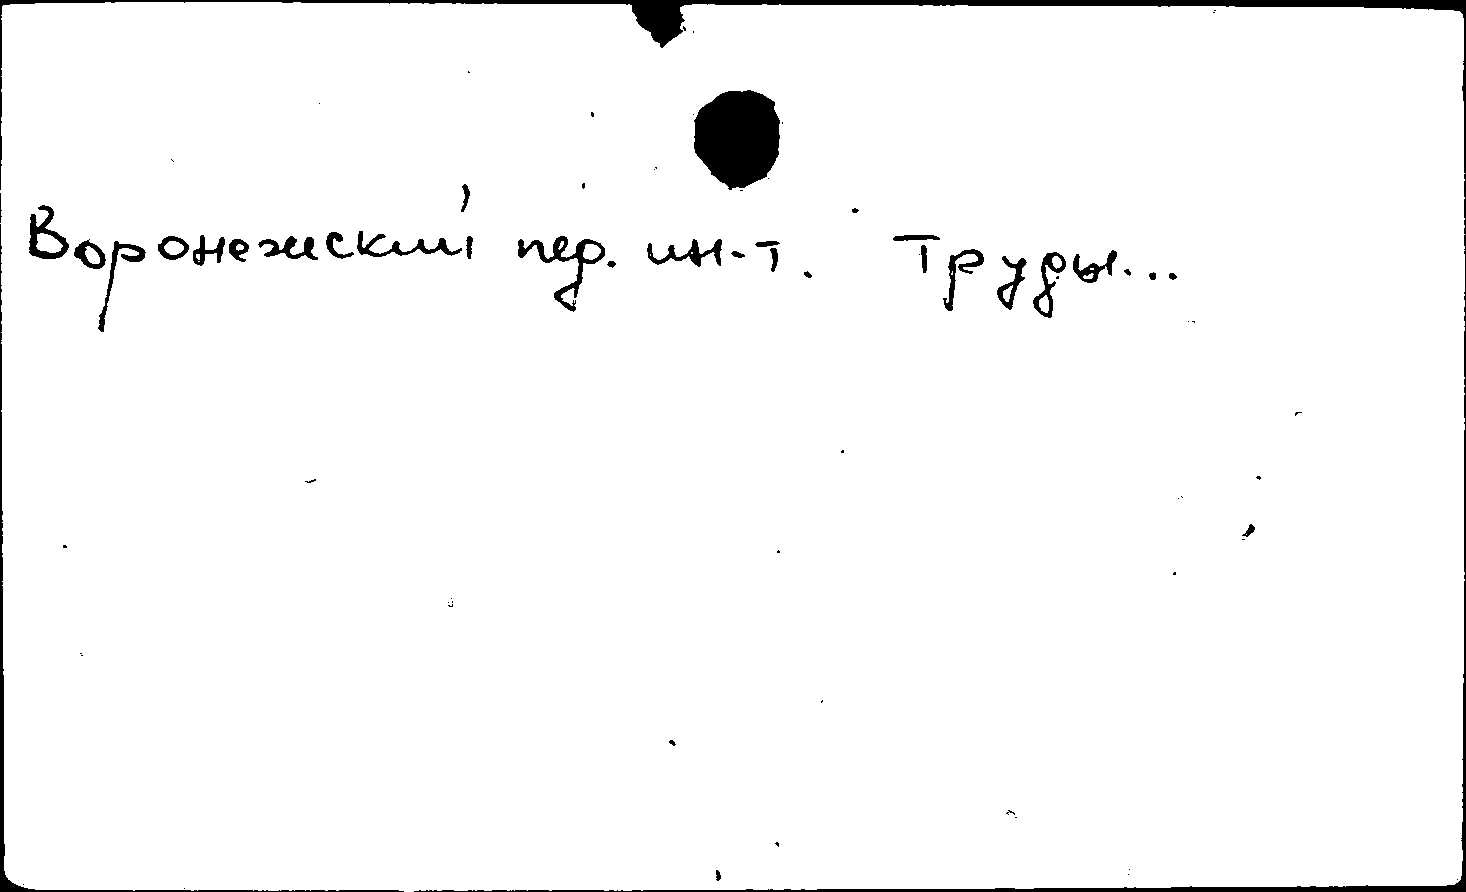 Воронежский пед. ин-т. Труды...